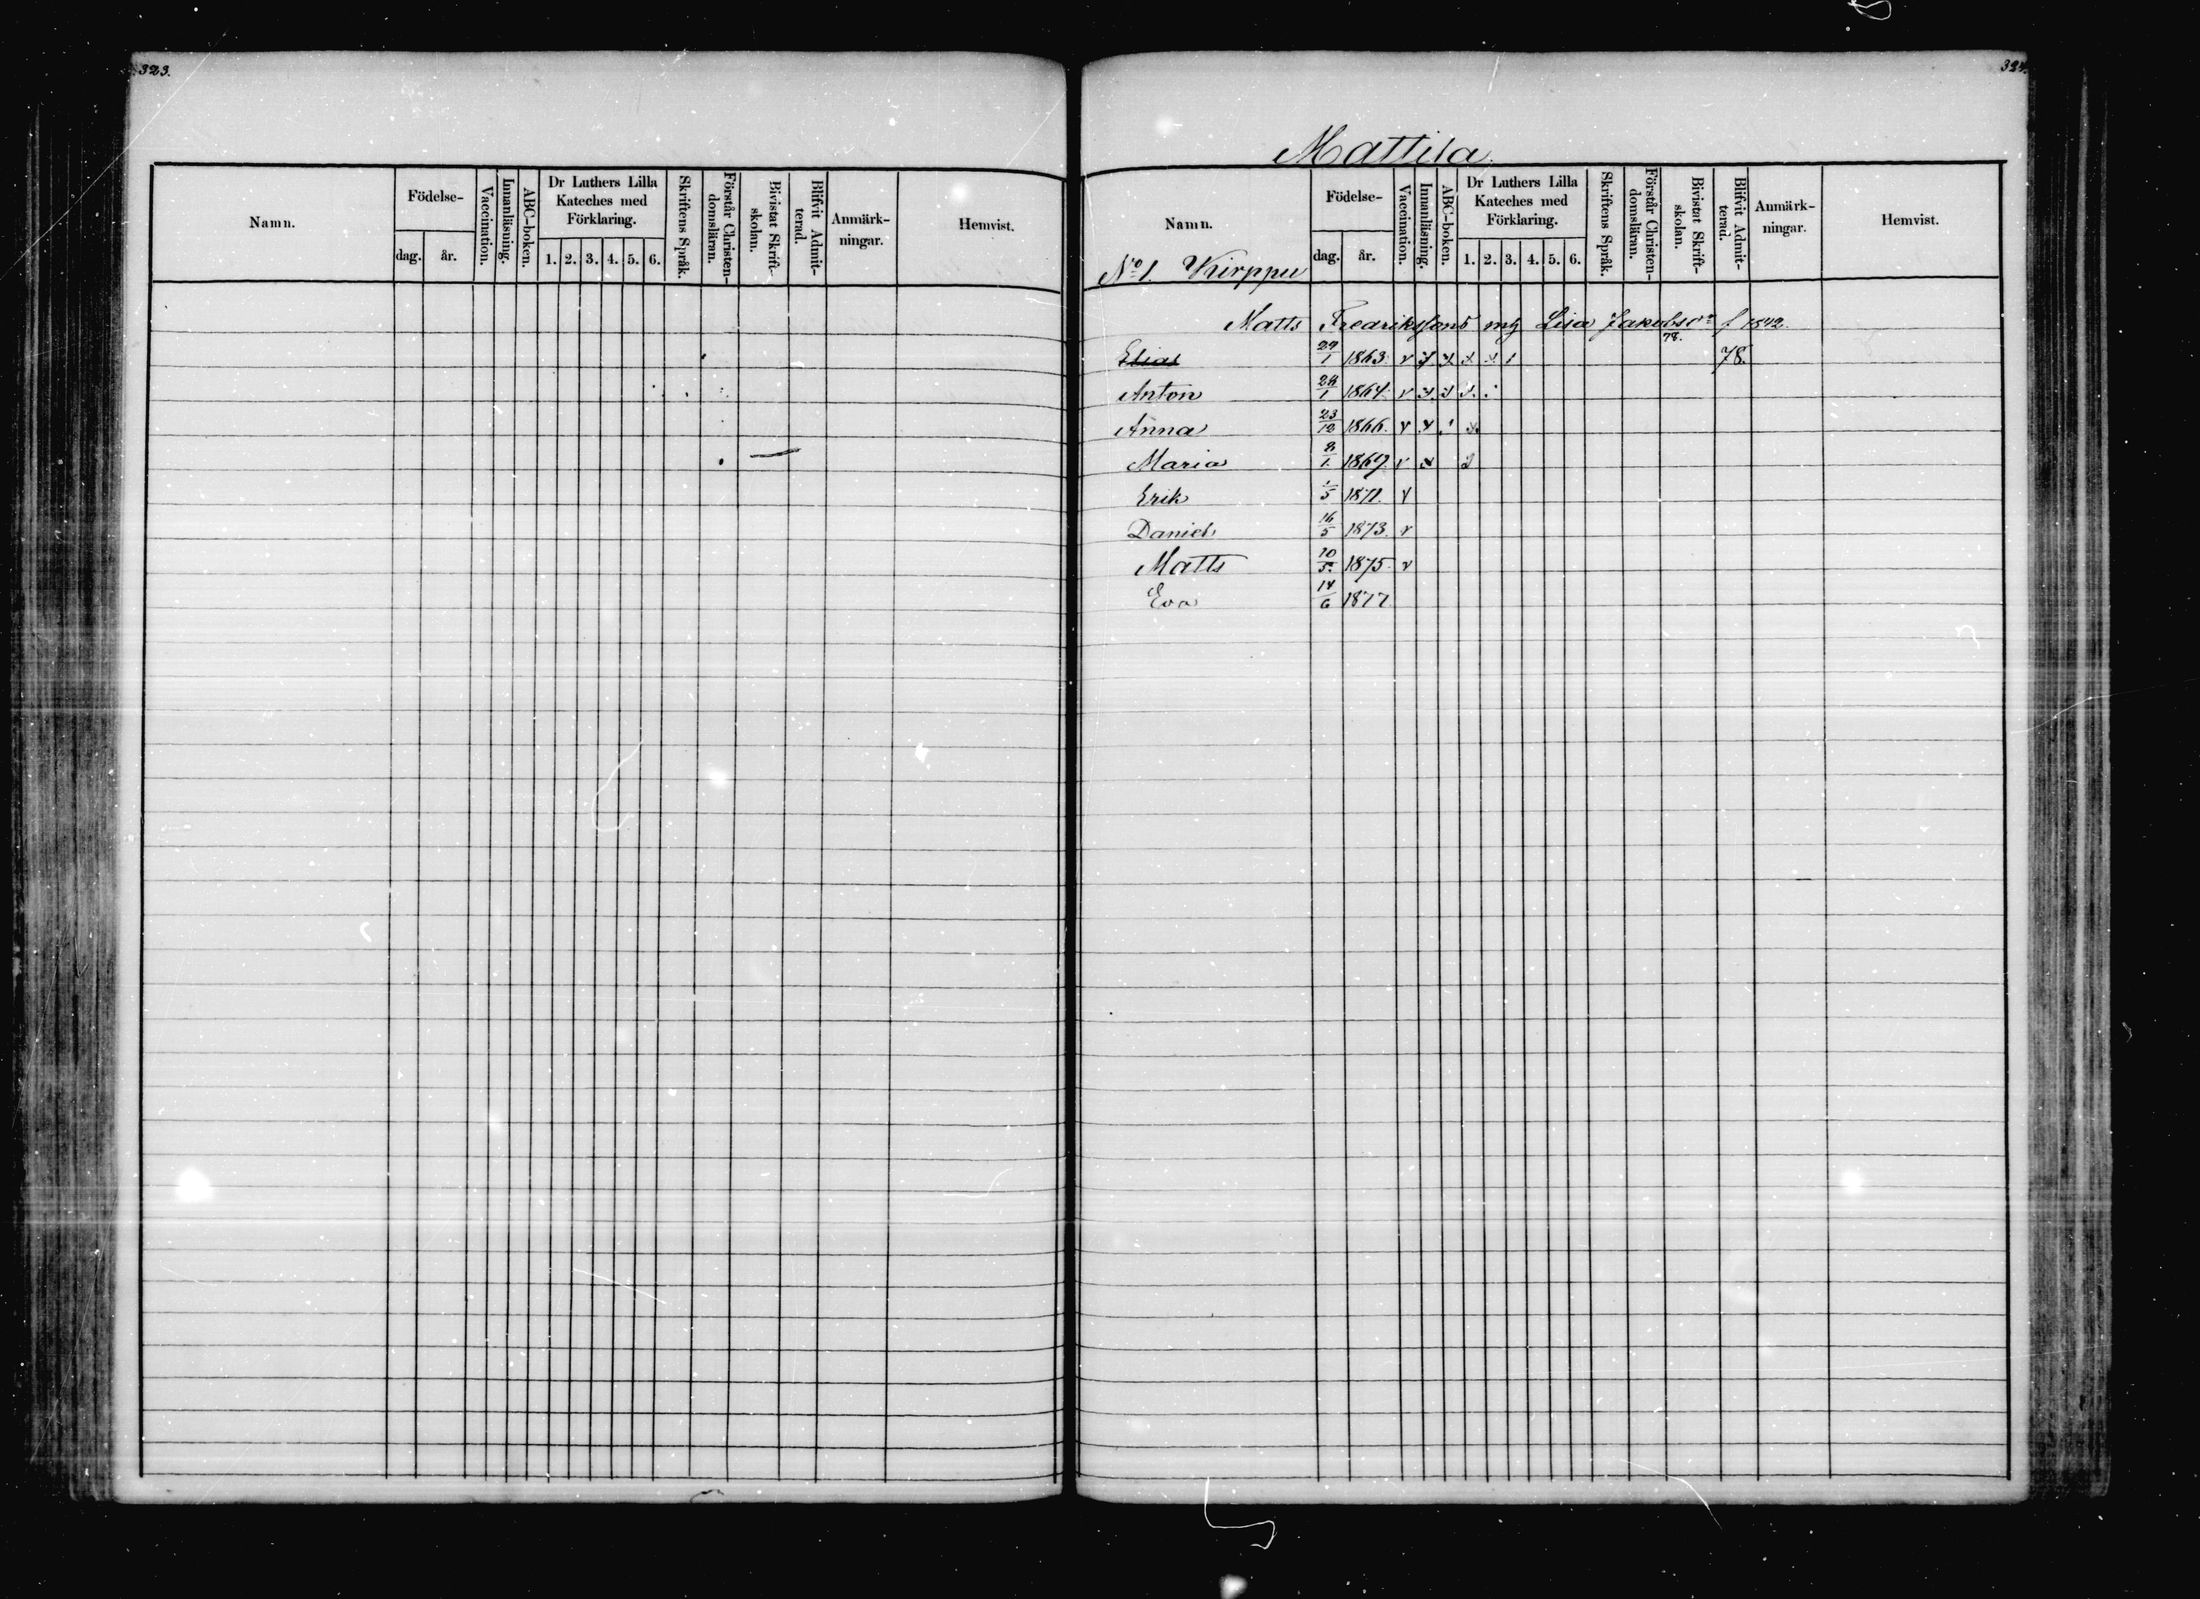 323.
Namn. Födelse- dag. år. Vaccination. Innanläsning. ABC-boken. Dr Luthers Lilla Kateches med Förklaring. 1. 2. 3. 4. 5. 6. Skriftens Språk. Förstår Christen-domsläran. Bivistat Skrift-skolan. Blifvit Admit-terad. Anmärk-ningar. Hemvist.
324.
Mattila.
Namn. Födelse- dag. år. Vaccination. Innanläsning. ABC-boken. Dr Luthers Lilla Kateches med Förklaring. 1. 2. 3. 4. 5. 6. Skriftens Språk. Förstår Christen-domsläran. Bivistat Skrift-skolan. Blifvit Admit-terad. Anmärk-ningar. Hemvist.
No 1. Kirppu
Matts Fredrikssons Lisa Jakobsdr f 1842.
Elias 29/1 1863. v x x x x 1 78. 78.
Anton 28/1 1864. v x x x
Anna 23/12 1866. v x x
Maria 8/1 1869. v x
Erik 1/5 1871. v
Daniel 16/5 1873. v
Matts 10/5 1875. v
Eva 14/6 1877